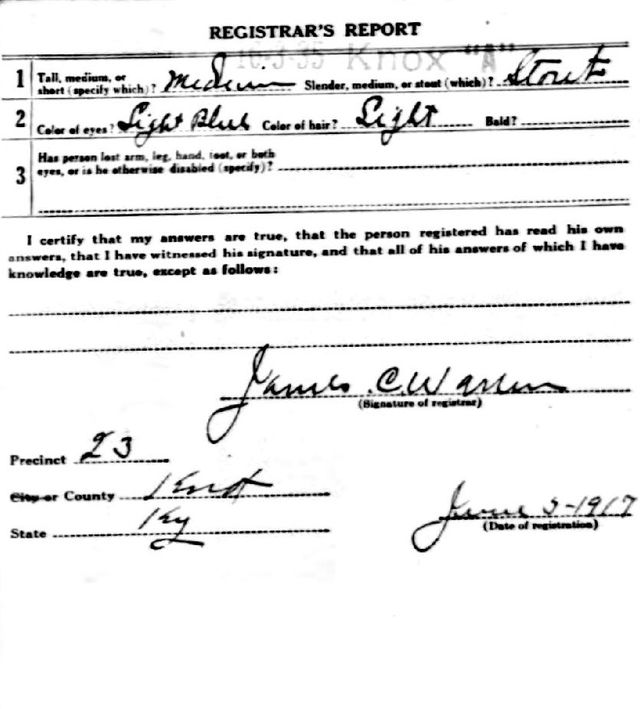 REGISTRAR'S REPORT
16-3-35 Knox "A"
1 Tall, medium, or short (specify which)? Medium Slender, medium, or stout (which)? Stout
2 Color of eyes? Light Blue Color of hair? Light Bald?
3 Has person lost arm, leg, hand, foot, or both
eyes, or is he otherwise disabled (specify)?
I certify that my answers are true, that the person registered has read his own
answers, that I have witnessed his signature, and that all of his answers of which I have
knowledge are true, except as follows:
James C. Warren
(Signature of registrar)
Precinct 23
City or County Knox
State Ky
June 5-1917
(Date of registration)